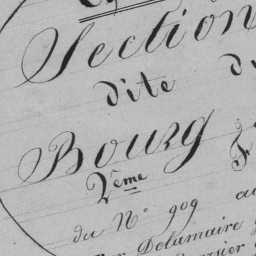 Section
dite d
Bourg
2ème F
du N° 909 au
Delamaire